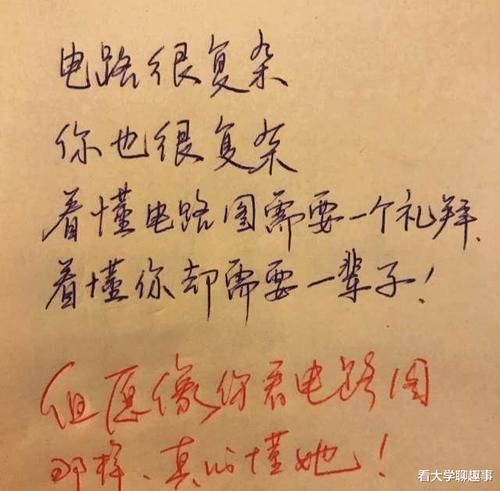 电路很复杂
你也很复杂
看懂电路图需要一个礼拜,
看懂你却需要一辈子!
但愿像你看电路图
那样、真的懂她!
看大学聊趣事